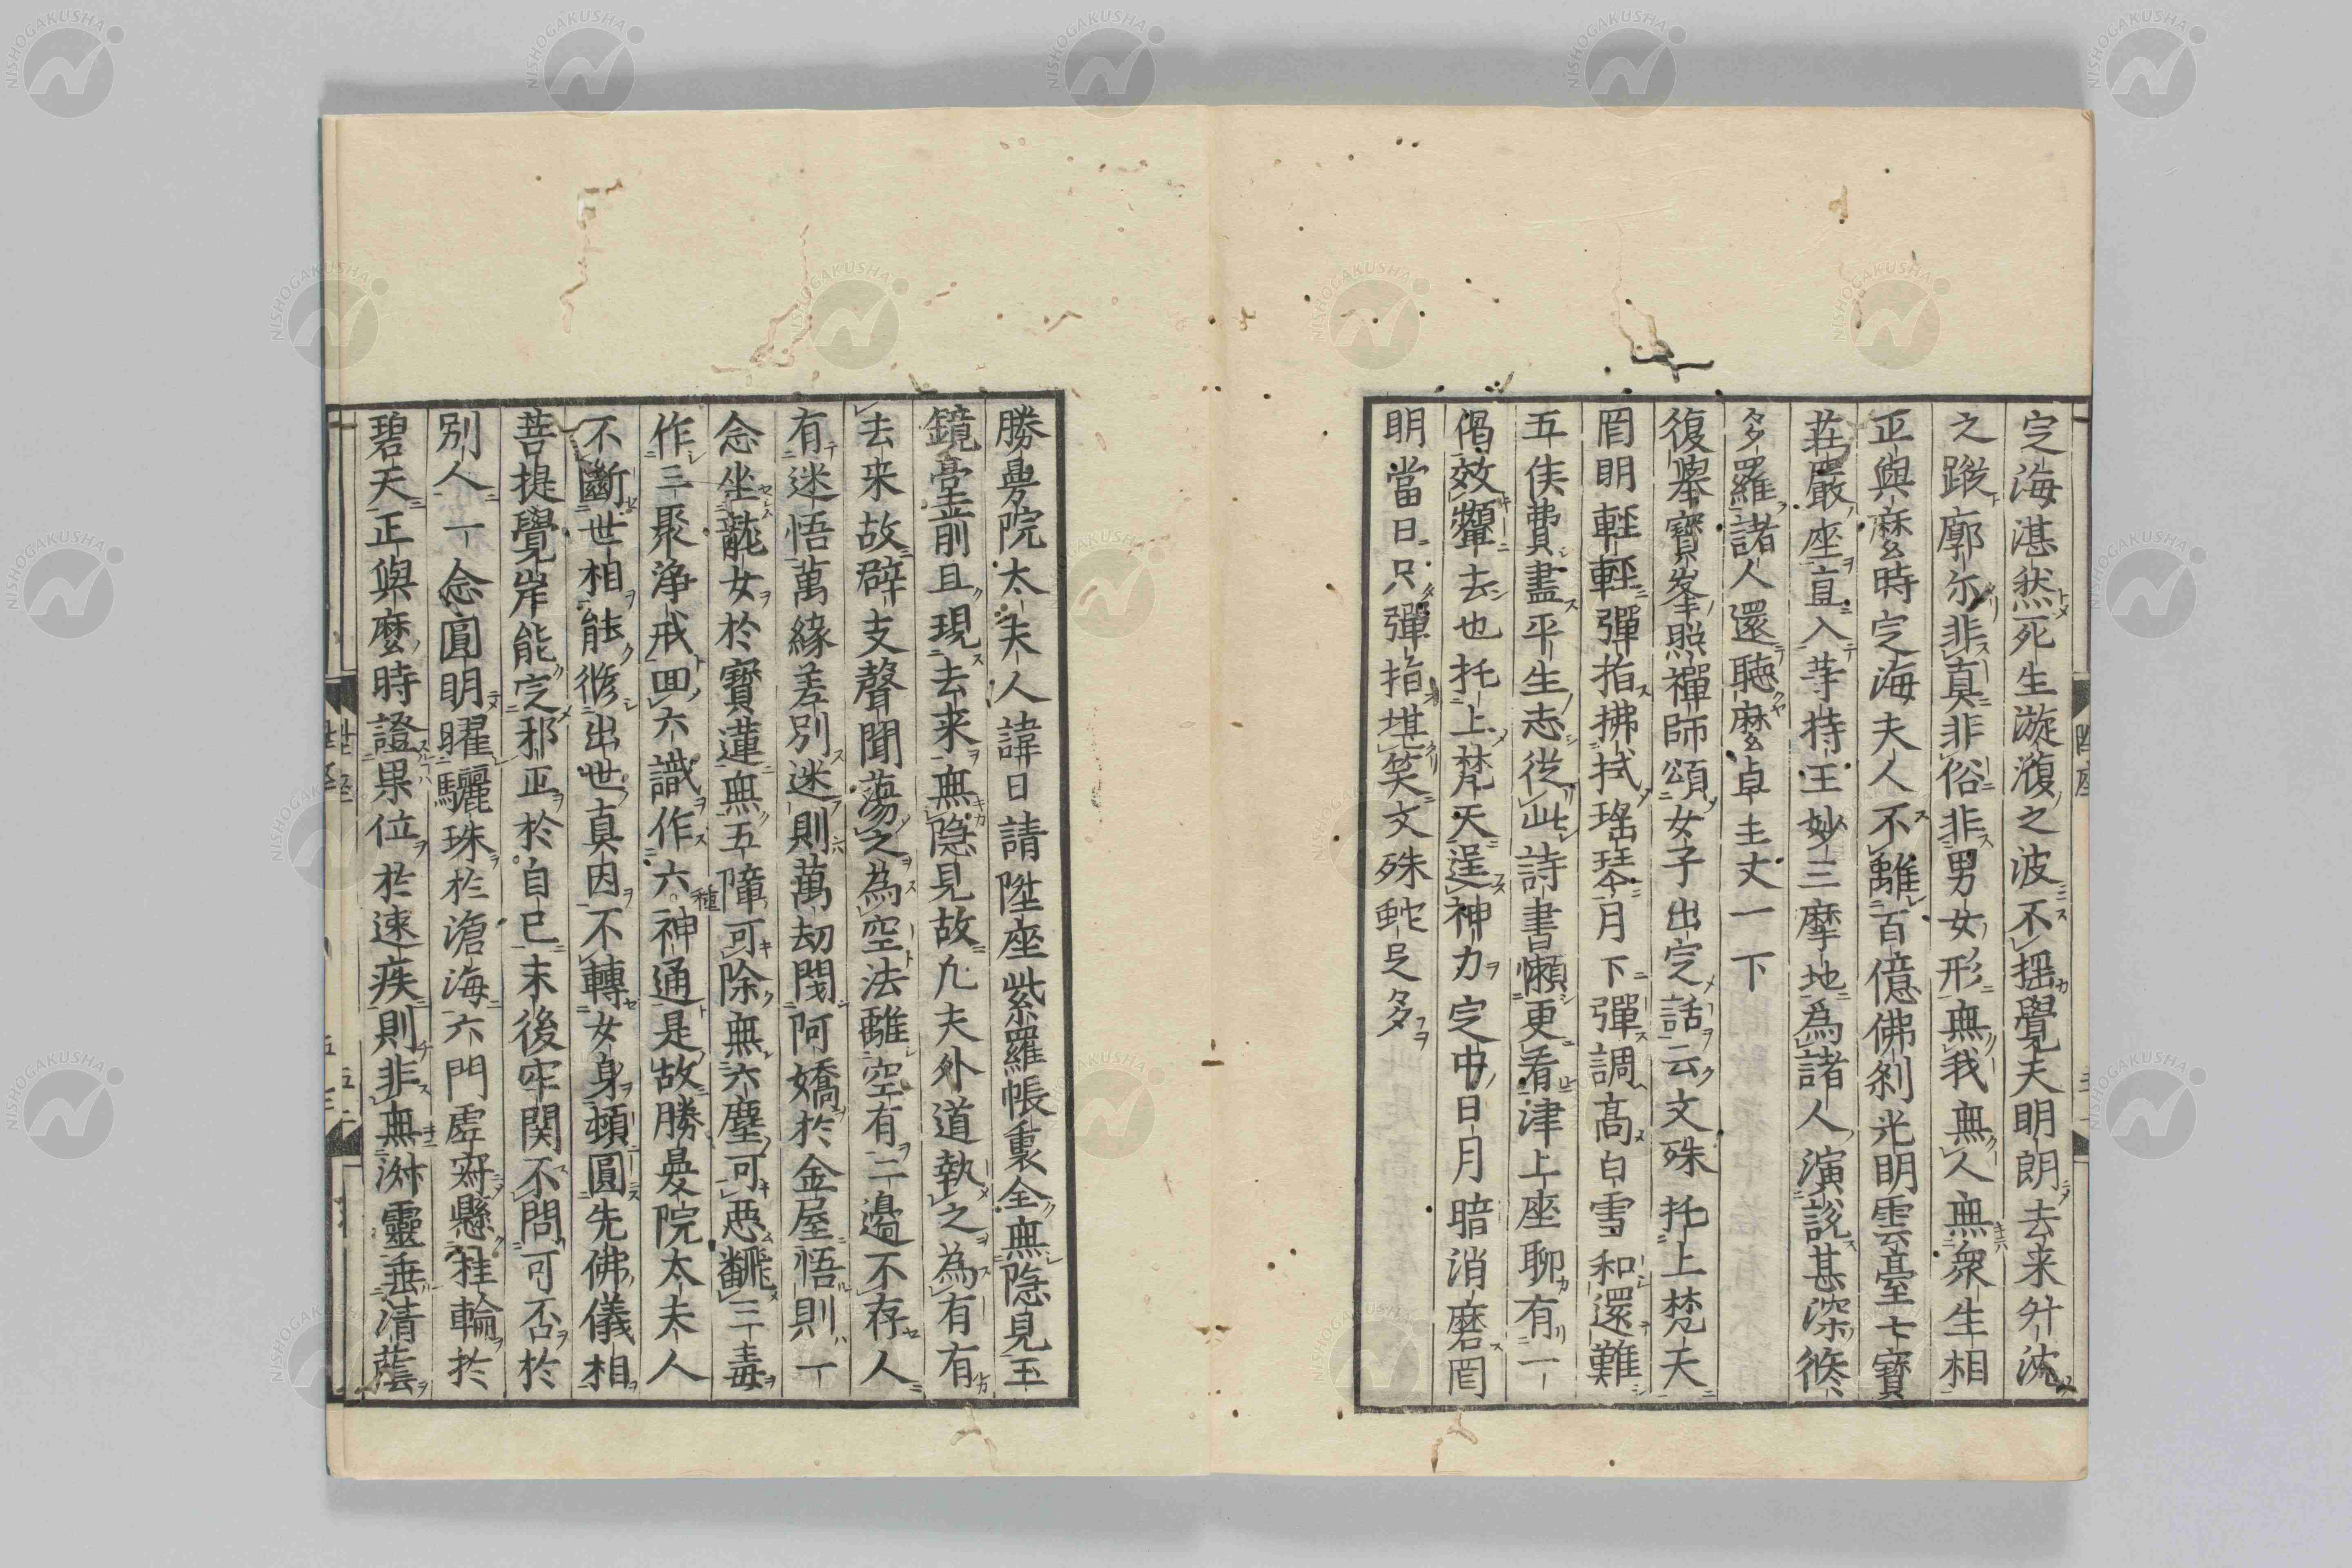 定海湛然死生漩澓之波不揺覺天明朗去来舛沈
之蹤廓尓非真非俗非男女形無我無人無衆生相
正與麼時定海夫人不離百億佛刹光明雲臺七寶
莊嚴座直入等持王妙三摩地為諸人演說甚深修
多羅諸人還聴麼卓主丈一下
復擧寶峯照禪師頌女子出定話云文殊托上梵天
罔明輕輕彈指拂拭瑤琴月下彈調高白雪和還難
五侠費盡平生志從此詩書懶更看津上座聊有一
偈效顰去也托上梵天逞神力定中日月暗消磨罔
明當日只彈指堪笑文殊蛇足多
勝鬘院太夫人諱日請陞座紫羅帳裏全無隐見玉
鏡臺前且現去来無隐見故凢夫外道執之為有有
去来故辟支聲聞蕩之為空法離空有二邉不存人
有迷悟萬緣差別迷則萬劫閟阿嬌於金屋悟則一
念坐龍女於寶蓮無五障可除無六塵可惡飜三毒
作三聚浄戒回六識作六神通是故勝曼院太夫人
種
不斷世相能修出世真因不轉女身頓圓先佛儀相
菩提覺岸能定邪正於自已末後牢関不問可否於
別人一念圓明曜驪珠於滄海六門虚寂懸桂輪於
碧天正與麼時證果位於速疾則非無淋靈垂清蔭
陞座